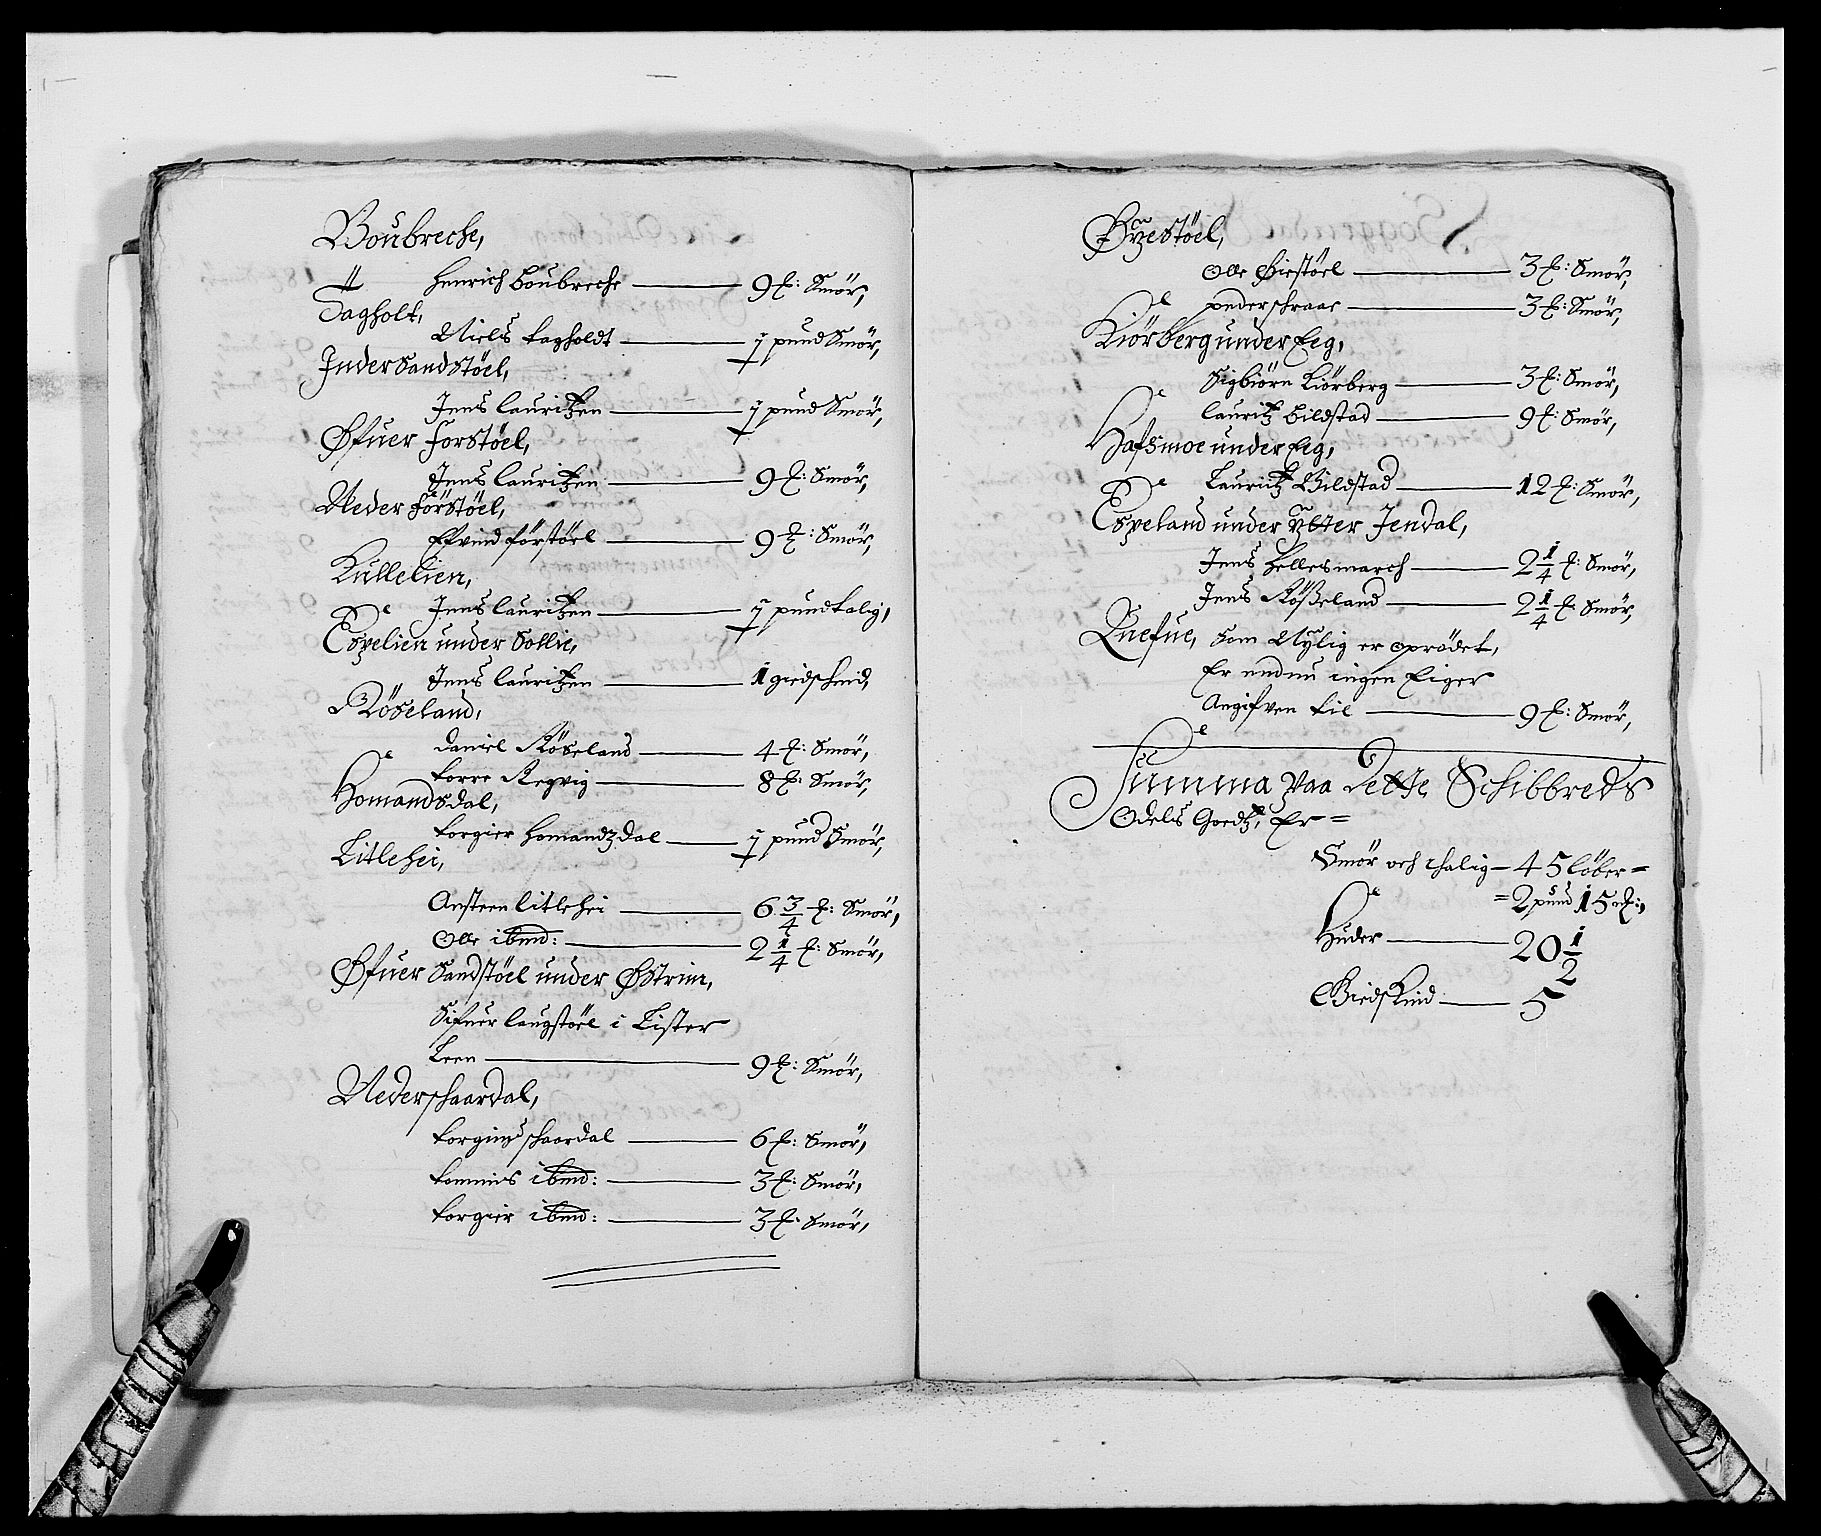 Boubreche,
Henrich Boubreche — 9 ℔: Smör,
Tagholt,
Niels tagholdt — 1 pund Smör,
Inder Sandstöel,
Jens lauritzen — 1 pund Smör,
Øfuer Forstöel,
Jens lauritzen — 9 ℔: Smör,
Neder Förstöel,
Efvind förstöel — 9 ℔: Smör,
Kullelien,
Jens lauritzen — 1 pund talig,
Espelien under Sollie,
Jens lauritzen — 1 giedschind,
Röseland,
Daniel Röseland — 4 ℔: Smör,
torre Regvig — 8 ℔: Smör,
Homandsdal,
torgier Homandzdal — 1 pund Smör,
Litlehei,
Ansteen litlehei — 6 3/4 ℔: Smör,
Olle ibmd: — 2 1/4 ℔: Smör,
Øfuer Sandstöel under Østrim,
Sifuer laugstöel i Lister
Leen — 9 ℔: Smör,
Nederschaardal,
torgiuls schaardal — 6 ℔: Smör,
tommis ibmd: — 3 ℔: Smör,
torgier ibmd: — 3 ℔: Smör,
Øyestöel,
Olle Øiestöel — 3 ℔: Smör,
peder schraae — 3 ℔: Smör,
Kiörberg under Eeg,
Sigbiörn Kiörberg — 3 ℔: Smör,
lauritz Bildstad — 9 ℔: Smör,
Hafsmoe under Eeg,
Lauritz Bildstad — 12 ℔: Smör,
Espeland under Ytter Jendal,
Jens Hellesmarch — 2 1/4 ℔: Smör,
Jens Rößeland — 2 1/4 ℔: Smör,
Quefue, som Nylig er oprödet,
Er endnu ingen Eiger
Angifven til — 9 ℔: Smör,
Summa paa Dette Schibbreds
Odels Goedtz, Er =
Smör och thalig — 45 löber =
= 2 pund 15 m℔:,
Huder — 20 1/2
Giedskind — 5